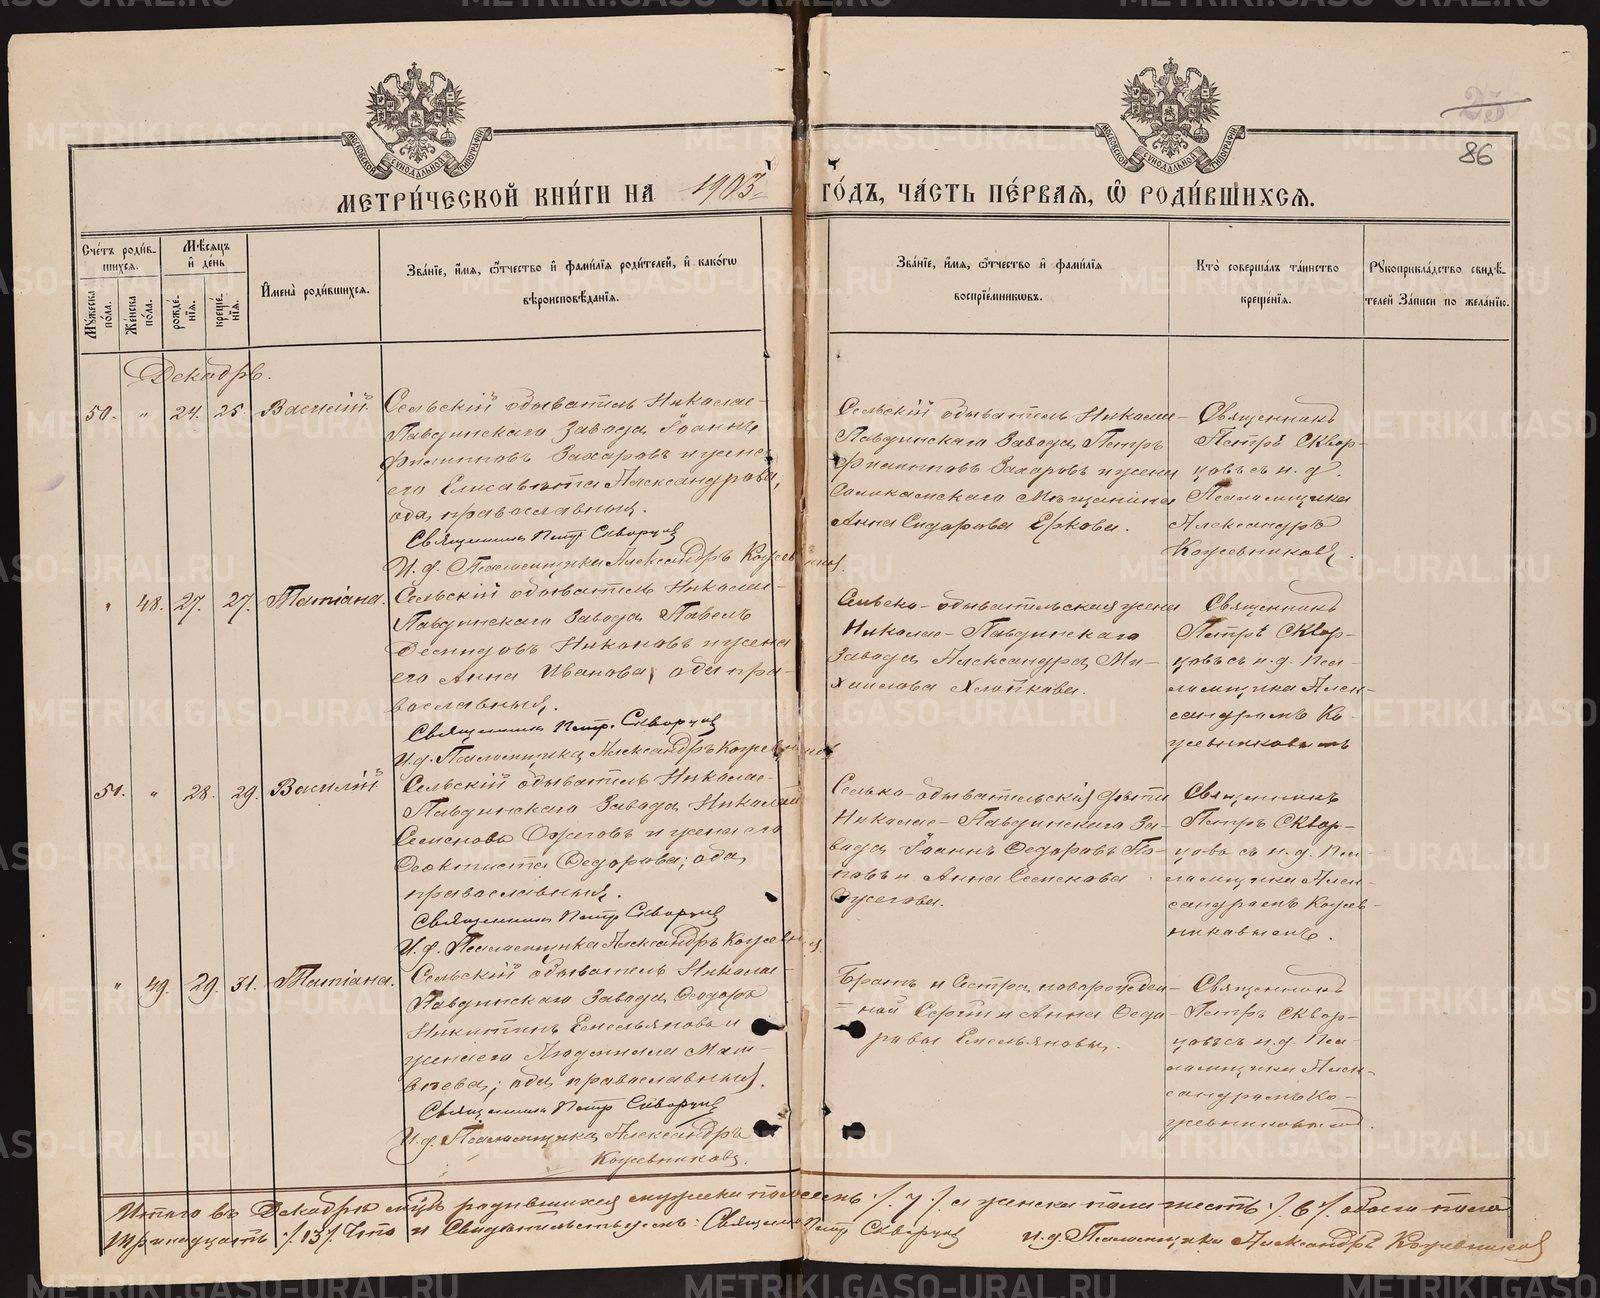 25
86
МОСКОВСКОЙ СУНОДАЛЬНОЙ ТИПОГРАФІИ
МОСКОВСКОЙ СУНОДАЛЬНОЙ ТИПОГРАФІИ
МЕТРИ́ЧЕСКОЙ КНИ́ГИ НА 1903 ГО́ДЪ, ЧА́СТЬ ПЕ́РВАЯ, Ѿ РОДИ́ВШИХСЯ.
Сче́тъ роди́вшихся.
Му́жеска по́ла.
Же́нска по́ла.
Мѣ́сяцъ и҆ де́нь
рожде́нїя.
креще́нїя.
И҆мена̀ роди́вшихся.
Зва́нїе, и҆́мя, ѻ҆́тчество и҆ фами́лїя роди́телей, и҆ како́гѡ
вѣроисповѣ́данїя.
Зва́нїе, и҆́мя, ѻ҆́тчество и҆ фами́лїя
воспрїе́мникѡвъ.
Кто̀ соверша́лъ та́инство
креще́нїя.
Рукоприкла́дство свидѣ́-
телей за́писи по жела́нїю.
Декабрь.
50. " 24. 25. Василій
Сельскій обыватель Николае-
Павдинскаго Завода Іоаннъ
Филипповъ Захаровъ и жена
его Елисавета Александрова,
оба православные.
Священникъ Петръ Скворцовъ
И. д. Псаломщика Александръ Кожевниковъ
Сельскій обыватель Николае-
Павдинскаго Завода Петръ
Филипповъ Захаровъ и жена
Соликамскаго Мѣщанина
Анна Сидорова Ершова.
Священникъ
Петръ Сквор-
цовъ съ и. д.
Псаломщика
Александръ
Кожевниковъ.
" 48. 27. 27. Татіана.
Сельскій обыватель Николае-
Павдинскаго Завода Павелъ
Демидовъ Никоновъ и жена
его Анна Иванова, оба пра-
вославные.
Священникъ Петръ Скворцовъ
И.д. Псаломщика Александръ Кожевниковъ
Сельско-обывательская жена
Николае-Павдинскаго
Завода Александра Ми-
хаилова
Священникъ
Петръ Сквор-
цовъ съ и.д. Пса-
ломщика Алек-
сандромъ Ко-
жевниковымъ
51. " 28. 29. Василій
Сельскій обыватель Николае-
Павдинскаго Завода Николай
Семеновъ Ожеговъ и жена его
Феоктиста Федорова, оба
православные.
Священникъ Петръ Скворцовъ
И.д. Псаломщика Александръ Кожевниковъ
Сельско-обывательскія дѣти
Николае-Павдинскаго За-
вода Іоаннъ Федоровъ По-
повъ и Анна Семенова
Ожегова.
Священникъ
Петръ Сквор-
цовъ съ и.д. Пса-
ломщика Алек-
сандромъ Кожев-
никовымъ.
" 49. 29. 31. Татіана.
Сельскій обыватель Николае-
Павдинскаго Завода Феодоръ
Никитинъ Емельяновъ и
жена его Людмилла Мат-
вѣева; оба православные.
Священникъ Петръ Скворцовъ
И.д. Псаломщика Александръ
Кожевниковъ.
Братъ и Сестра новорожден-
ной Сергій и Анна Федо-
ровы Емельяновы.
Священникъ
Петръ Сквор-
цовъ съ и.д. Пса-
ломщика Алек-
сандромъ Ко-
жевниковымъ.
Итого въ Декабрѣ мцѣ родившихся мужеска пола семь /7/ а женска пола шесть /6/ обоего пола
тринадцать /13/ Что и Свидѣтельствуемъ: Священникъ Петръ Скворцовъ и.д. Псаломщика Александръ Кожевниковъ
METRIKI.GASO-URAL.RU